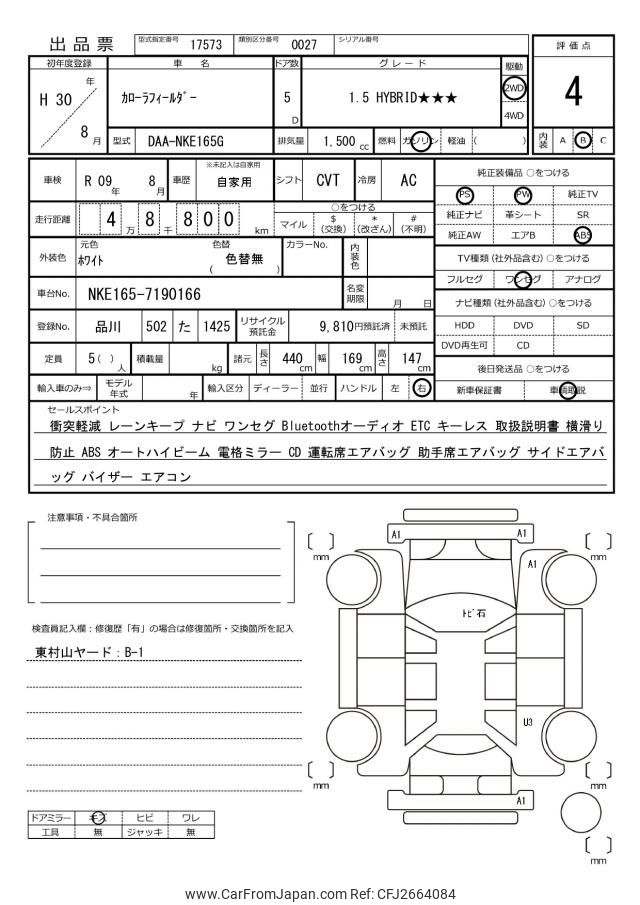 出品票 型式指定番号 17573 類別区分番号 0027 シリアル番号
評価点
4
内装 A B C
初年度登録 車名 ドア数 グレード 駆動
H 30 年 8 月
カローラフィールダー 5 D 1.5 HYBRID★★★ 2WD 4WD
型式 DAA-NKE165G 排気量 1,500 cc 燃料 ガソリン 軽油 ( )
車検 R 09 年 8 月 車歴 ※未記入は自家用 自家用 シフト CVT 冷房 AC
走行距離 4 8 8 0 0 万 千 km
○をつける
マイル $ (交換) * (改ざん) # (不明)
外装色 元色 ホワイト 色替 ( 色替無 ) カラーNo. 内装色
車台No. NKE165-7190166 名変期限 月 日
登録No. 品川 502 た 1425 リサイクル預託金 9,810円預託済 未預託
定員 5 ( ) 人 積載量 kg 諸元 長さ 440 cm 幅 169 cm 高さ 147 cm
輸入車のみ⇒ モデル年式 年 輸入区分 ディーラー 並行 ハンドル 左 右
純正装備品 ○をつける
PS PW 純正TV
純正ナビ 革シート SR
純正AW エアB ABS
TV種類 (社外品含む) ○をつける
フルセグ ワンセグ アナログ
ナビ種類 (社外品含む) ○をつける
HDD DVD SD
DVD再生可 CD
後日発送品 ○をつける
新車保証書 車輌取説
セールスポイント
衝突軽減 レーンキープ ナビ ワンセグ Bluetoothオーディオ ETC キーレス 取扱説明書 横滑り
防止 ABS オートハイビーム 電格ミラー CD 運転席エアバッグ 助手席エアバッグ サイドエアバ
ッグ バイザー エアコン
注意事項・不具合箇所
検査員記入欄：修復歴「有」の場合は修復箇所・交換箇所を記入
東村山ヤード：B-1
ドアミラー キズ ヒビ ワレ
工具 無 ジャッキ 無
A1 A1
A1
トビ石
U3
A1
mm mm
mm mm
mm
www.CarFromJapan.com Ref: CFJ2664084